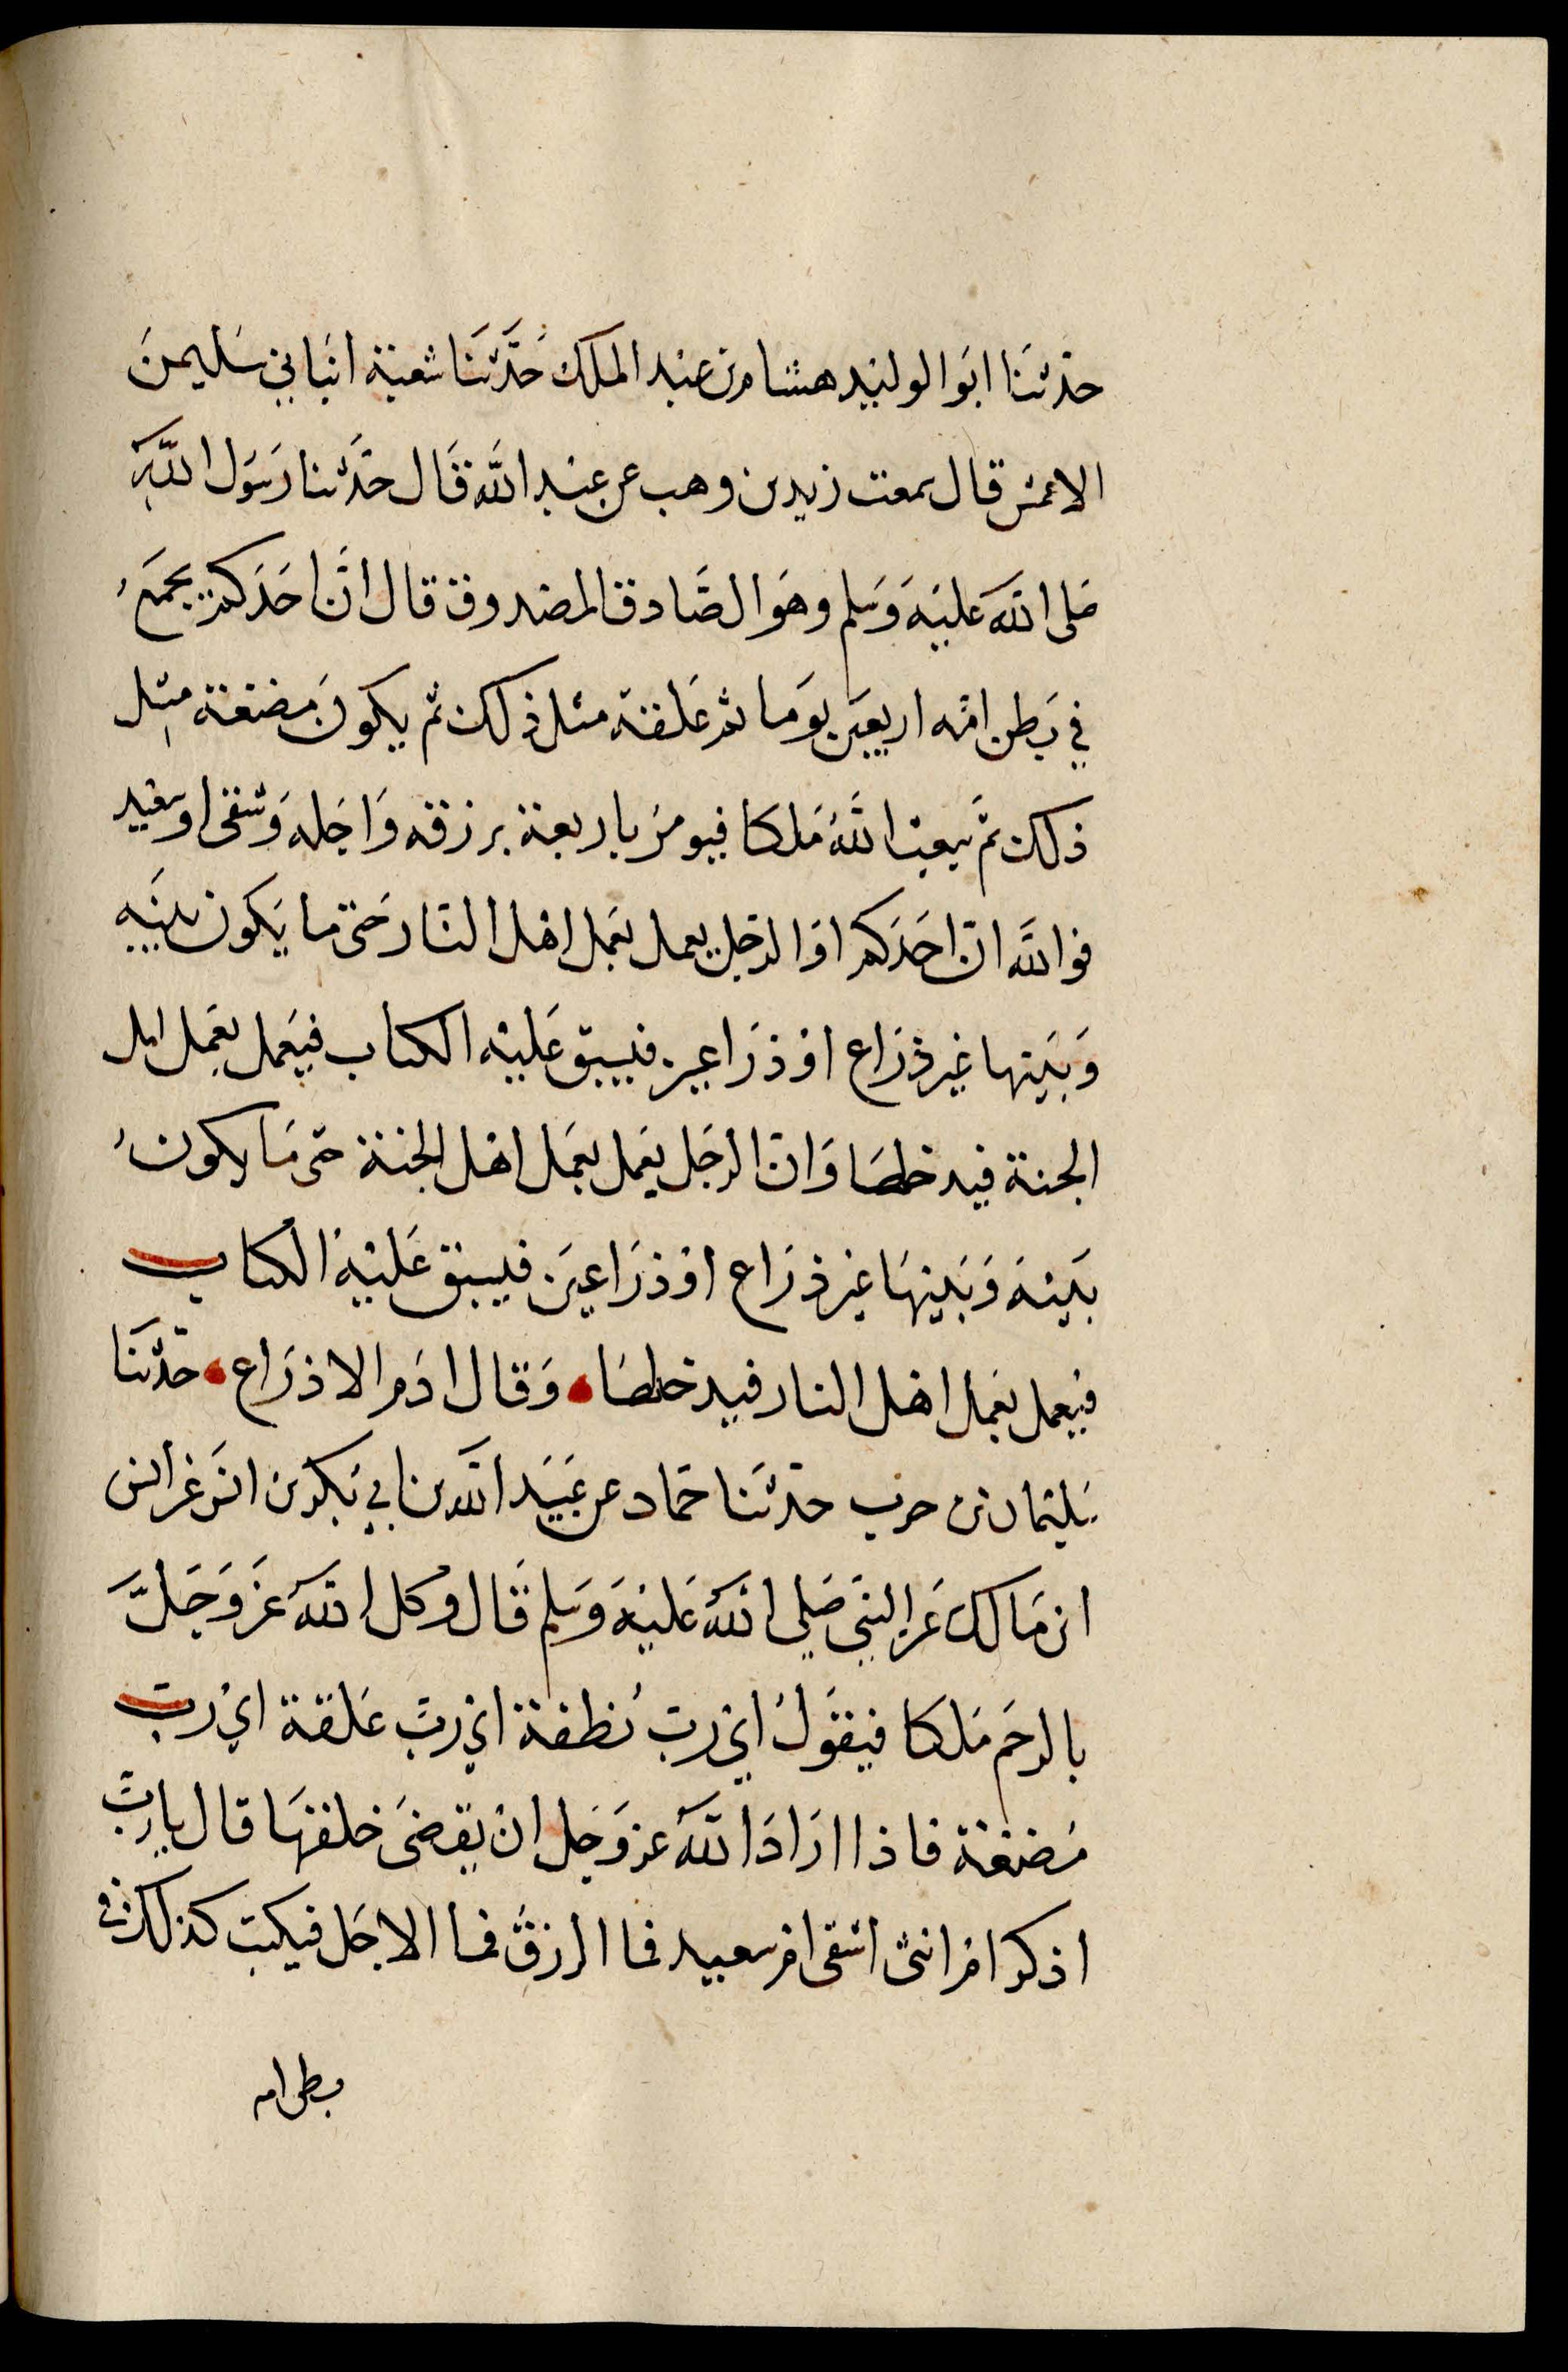 حدثنا ابو الوليد هشام بن عبد الملك حدثنا شعبة انباني سليمن
الاعمش قال سمعت زيد بن وهب عن عبد الله قال حدثنا رسول الله
صلى الله عليه وسلم وهو الصادق المصدوق قال ان احدكم يجمع
في بطن امه اربعين يوما ثم علقة مثل ذلك ثم يكون مضغة مثل
ذلك ثم يبعث الله ملكا فيومر باربعة برزقه واجله وشقي او سعيد
فوالله ان احدكم او الرجل يعمل بعمل اهل النار حتى ما يكون بينه
وبينها غير ذراع او ذراعين فيسبق عليه الكتاب فيعمل بعمل اهل
الجنة فيدخلها وان الرجل يعمل بعمل اهل الجنة حتى ما يكون
بينه وبينها غير ذراع او ذراعين فيسبق عليه الكتاب
فيعمل بعمل اهل النار فيدخلها وقال ادم الا ذراع حدثنا
سليمان بن حرب حدثنا حماد عن عبيد الله بن ابي بكر بن انس عن انس
ابن مالك عن النبي صلى الله عليه وسلم قال وكل الله عز وجل
بالرحم ملكا فيقول اي رب نطفة اي رب علقة اي رب
مضغة فاذا اراد الله عز وجل ان يقضى خلقها قال يا رب
اذكر ام انثى اشقى ام سعيد فما الرزق فما الاجل فيكتب كذلك في
بطن امه